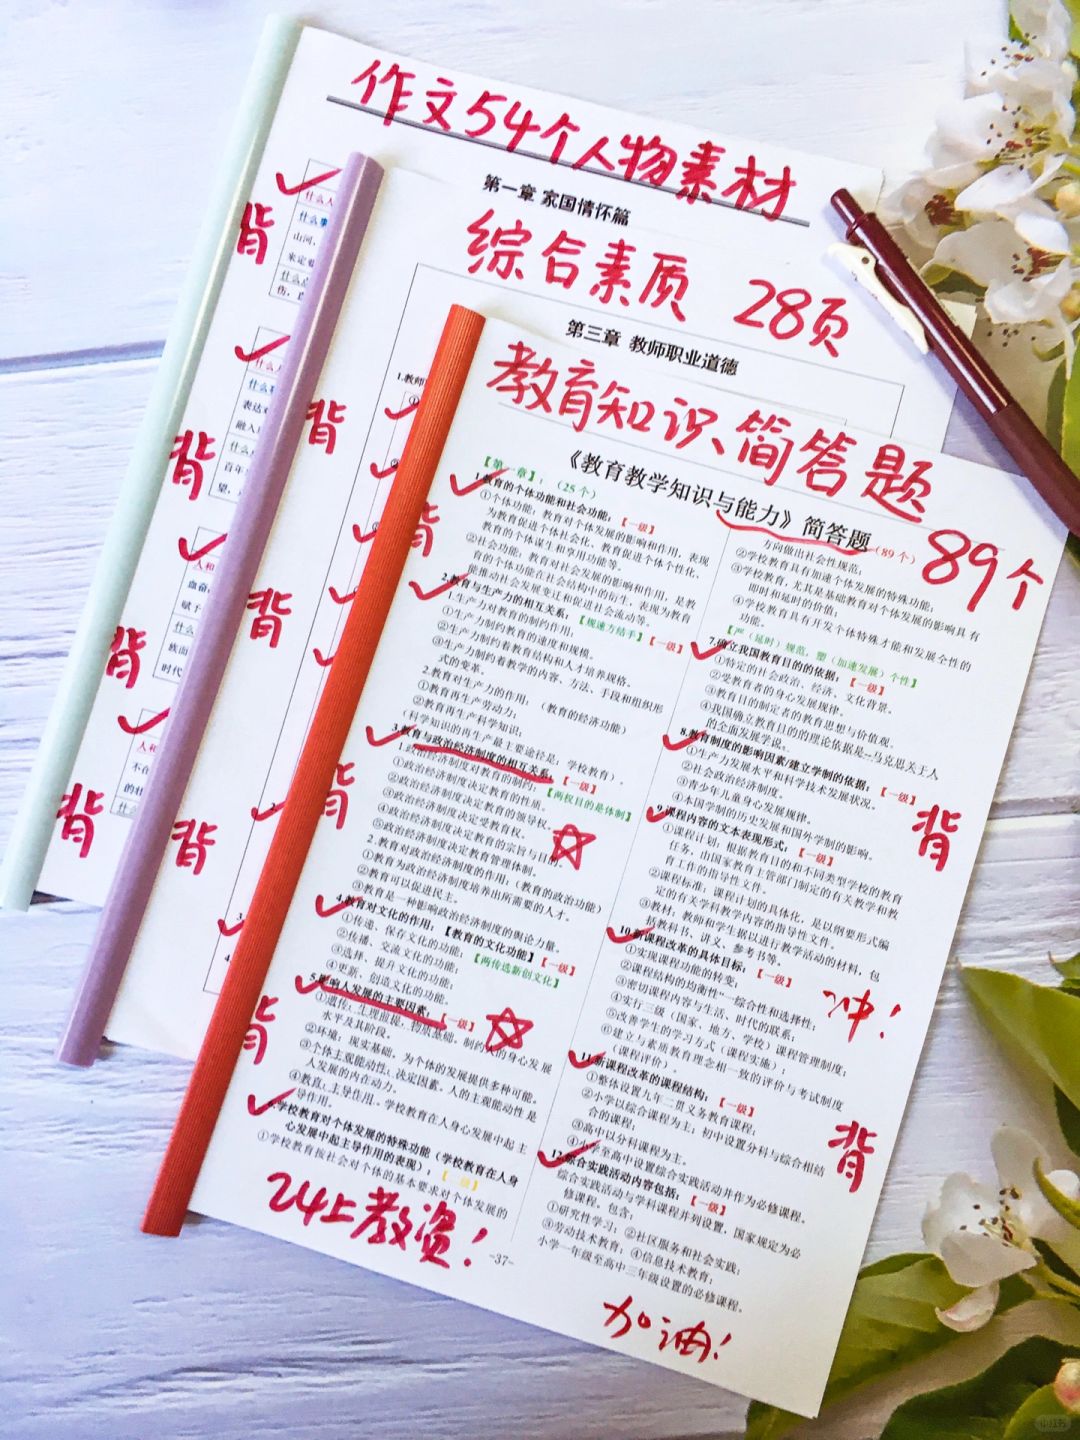 作文54个人物素材
第一章 家国情怀篇
背
背
背
背
综合素质 28页
第三章 教师职业道德
背
背
背
教育知识简答题
89个
《教育教学知识与能力》简答题(89个)
【第一章】:(25个)
1.教育的个体功能和社会功能:【一级】
①个体功能:教育对个体发展的影响和作用,表现
为教育促进个体社会化、教育促进个体个性化、
教育的个体谋生和享用功能等。
②社会功能:教育对社会发展的影响和作用,是教
育的个体功能在社会结构中的衍生,表现为教育
能推动社会发展变迁和促进社会流动等。
2.教育与生产力的相互关系:【规速方结手】【一级】
1.生产力对教育的制约作用:
①生产力制约教育的速度和规模。
②生产力制约着教育结构和人才培养规格。
③生产力制约着教学的内容、方法、手段和组织形
式的变革。
2.教育对生产力的作用:(教育的经济功能)
①教育再生产劳动力;
②教育再生产科学知识;
(科学知识的再生产最主要途径是:学校教育)。
3.教育与政治经济制度的相互关系:【一级】
1.政治经济制度对教育的制约:【两权目的是体制】
①政治经济制度决定教育的性质。
②政治经济制度决定教育的领导权。
③政治经济制度决定受教育权。
④政治经济制度决定教育的宗旨与目的。
⑤政治经济制度决定教育管理体制。
2.教育对政治经济制度的作用:(教育的政治功能)
①教育为政治经济制度培养出所需要的人才。
②教育可以促进民主。
③教育是一种影响政治经济制度的舆论力量。
4.教育对文化的作用:【教育的文化功能】【一级】
①传递、保存文化的功能;【两传选新创文化】
②传播、交流文化的功能;
③选择、提升文化的功能;
④更新、创造文化的功能。
5.影响人发展的主要因素:【一级】
①遗传:生理前提,物质基础。制约人的身心发展
水平及其阶段。
②环境:现实基础,为个体的发展提供多种可能。
③个体主观能动性:决定因素,人的主观能动性是
人发展的内在动力。
④教育:主导作用。学校教育在人身心发展中起主
导作用。
6.学校教育对个体发展的特殊功能(学校教育在人身
心发展中起主导作用的表现):【一级】
①学校教育按社会对个体的基本要求对个体发展的
方向做出社会性规范;
②学校教育具有加速个体发展的特殊功能;
③学校教育,尤其是基础教育对个体发展的影响具有
即时和延时的价值;
④学校教育具有开发个体特殊才能和发展个性的
功能。
【严(延时)规范,塑(加速发展)个性】
7.确立我国教育目的的依据:【一级】
①特定的社会政治、经济、文化背景。
②受教育者的身心发展规律。
③教育目的制定者的教育思想与价值观。
④我国确立教育目的的理论依据是--马克思关于人
的全面发展学说。
8.教育制度的影响因素/建立学制的依据:【一级】
①生产力发展水平和科学技术发展状况。
②社会政治经济制度。
③青少年儿童身心发展规律。
④本国学制的历史发展和国外学制的影响。
9.课程内容的文本表现形式:【一级】
①课程计划:根据教育目的和不同类型学校的教育
任务,由国家教育主管部门制定的有关教学和教
育工作的指导性文件。
②课程标准:课程计划的具体化,是以纲要形式编
定的有关学科教学内容的指导性文件。
③教材:教师和学生据以进行教学活动的材料,包
括教科书、讲义、参考书等。
10.新课程改革的具体目标:【一级】
①实现课程功能的转变;
②课程结构的均衡性--综合性和选择性;
③密切课程内容与生活、时代的联系;
④实行三级(国家、地方、学校)课程管理制度;
⑤改善学生的学习方式(课程实施);
⑥建立与素质教育理念相一致的评价与考试制度
(课程评价)。
11.新课程改革的课程结构:【一级】
①整体设置九年一贯义务教育课程;
②小学以综合课程为主;初中设置分科与综合相结
合的课程;
③高中以分科课程为主。
④小学至高中设置综合实践活动并作为必修课程。
12.综合实践活动内容包括:【一级】
综合实践活动与学科课程并列设置,国家规定为必
修课程。包含:
①研究性学习;②社区服务和社会实践;
③劳动技术教育;④信息技术教育;
小学一年级至高中三年级设置的必修课程。
背
背
背
背
冲!
背
24上教资!
-37-
加油!